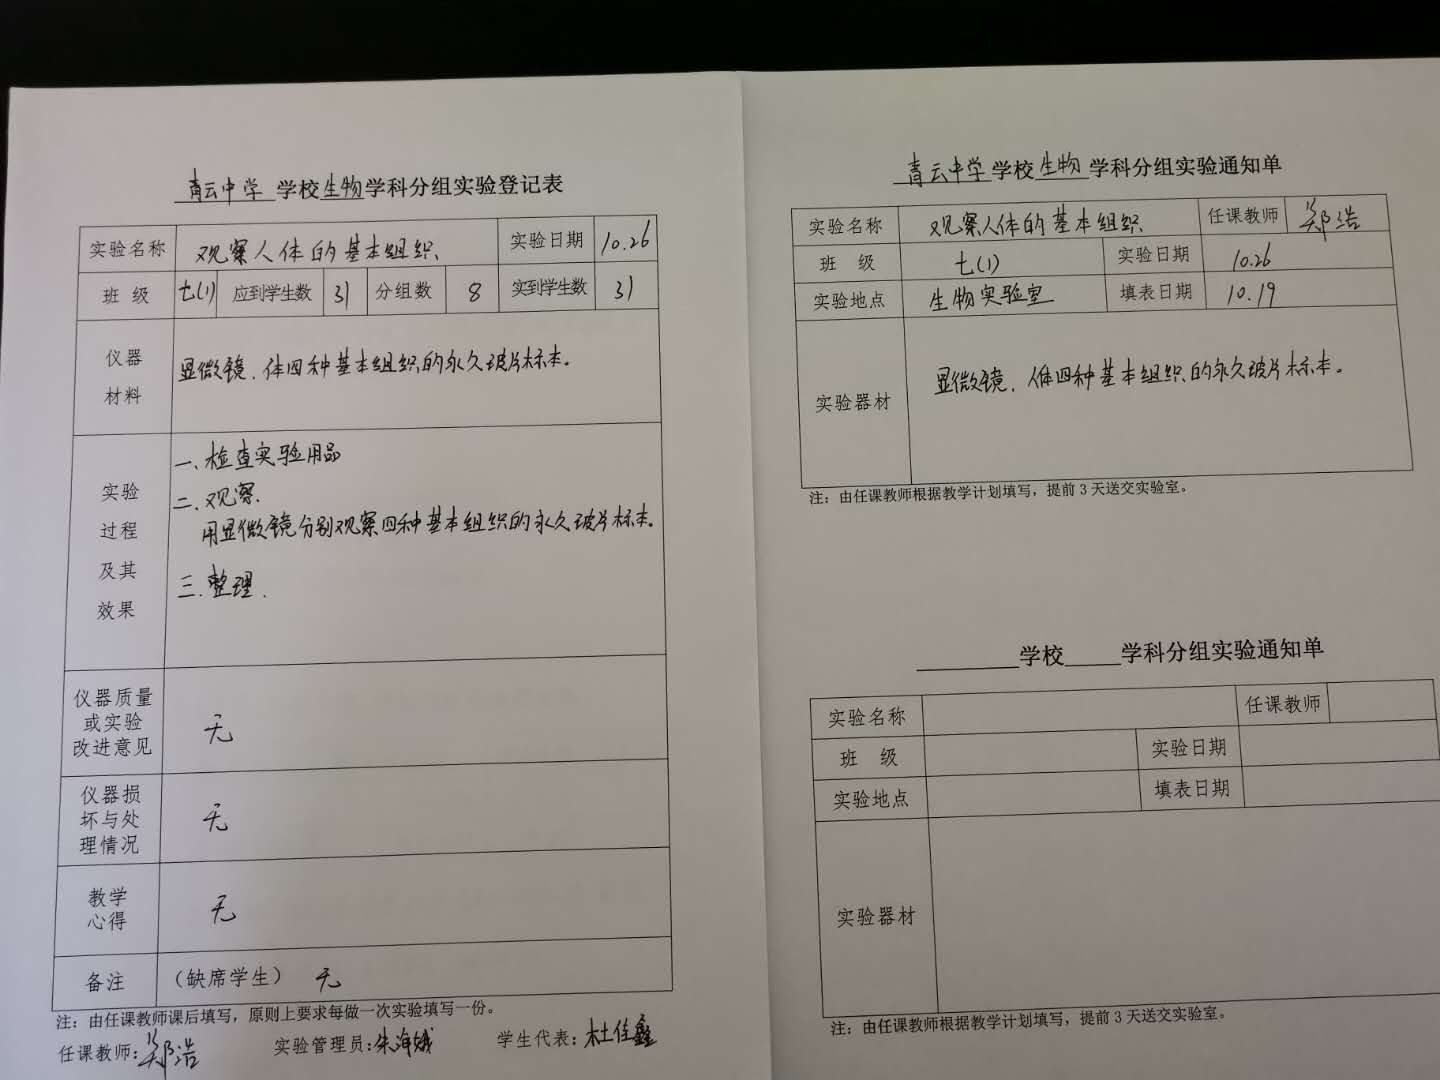 青云中学 学校生物学科分组实验登记表
实验名称 观察人体的基本组织 实验日期 10.26
班 级 七(1) 应到学生数 31 分组数 8 实到学生数 31
仪器
材料
显微镜、体四种基本组织的永久玻片标本。
实验
过程
及其
效果
一、检查实验用品
二、观察.
用显微镜分别观察四种基本组织的永久玻片标本。
三.整理.
仪器质量
或实验
改进意见
无
仪器损
坏与处
理情况
无
教学
心得
无
备注 (缺席学生) 无
注：由任课教师课后填写，原则上要求每做一次实验填写一份。
任课教师:郑浩 实验管理员:朱海娥 学生代表:杜佳鑫
青云中学 学校生物 学科分组实验通知单
实验名称 观察人体的基本组织 任课教师 郑浩
班 级 七(1) 实验日期 10.26
实验地点 生物实验室 填表日期 10.19
实验器材
显微镜、体四种基本组织的永久玻片标本。
注：由任课教师根据教学计划填写，提前3天送交实验室。
学校 学科分组实验通知单
实验名称 任课教师
班 级 实验日期
实验地点 填表日期
实验器材
注：由任课教师根据教学计划填写，提前3天送交实验室。